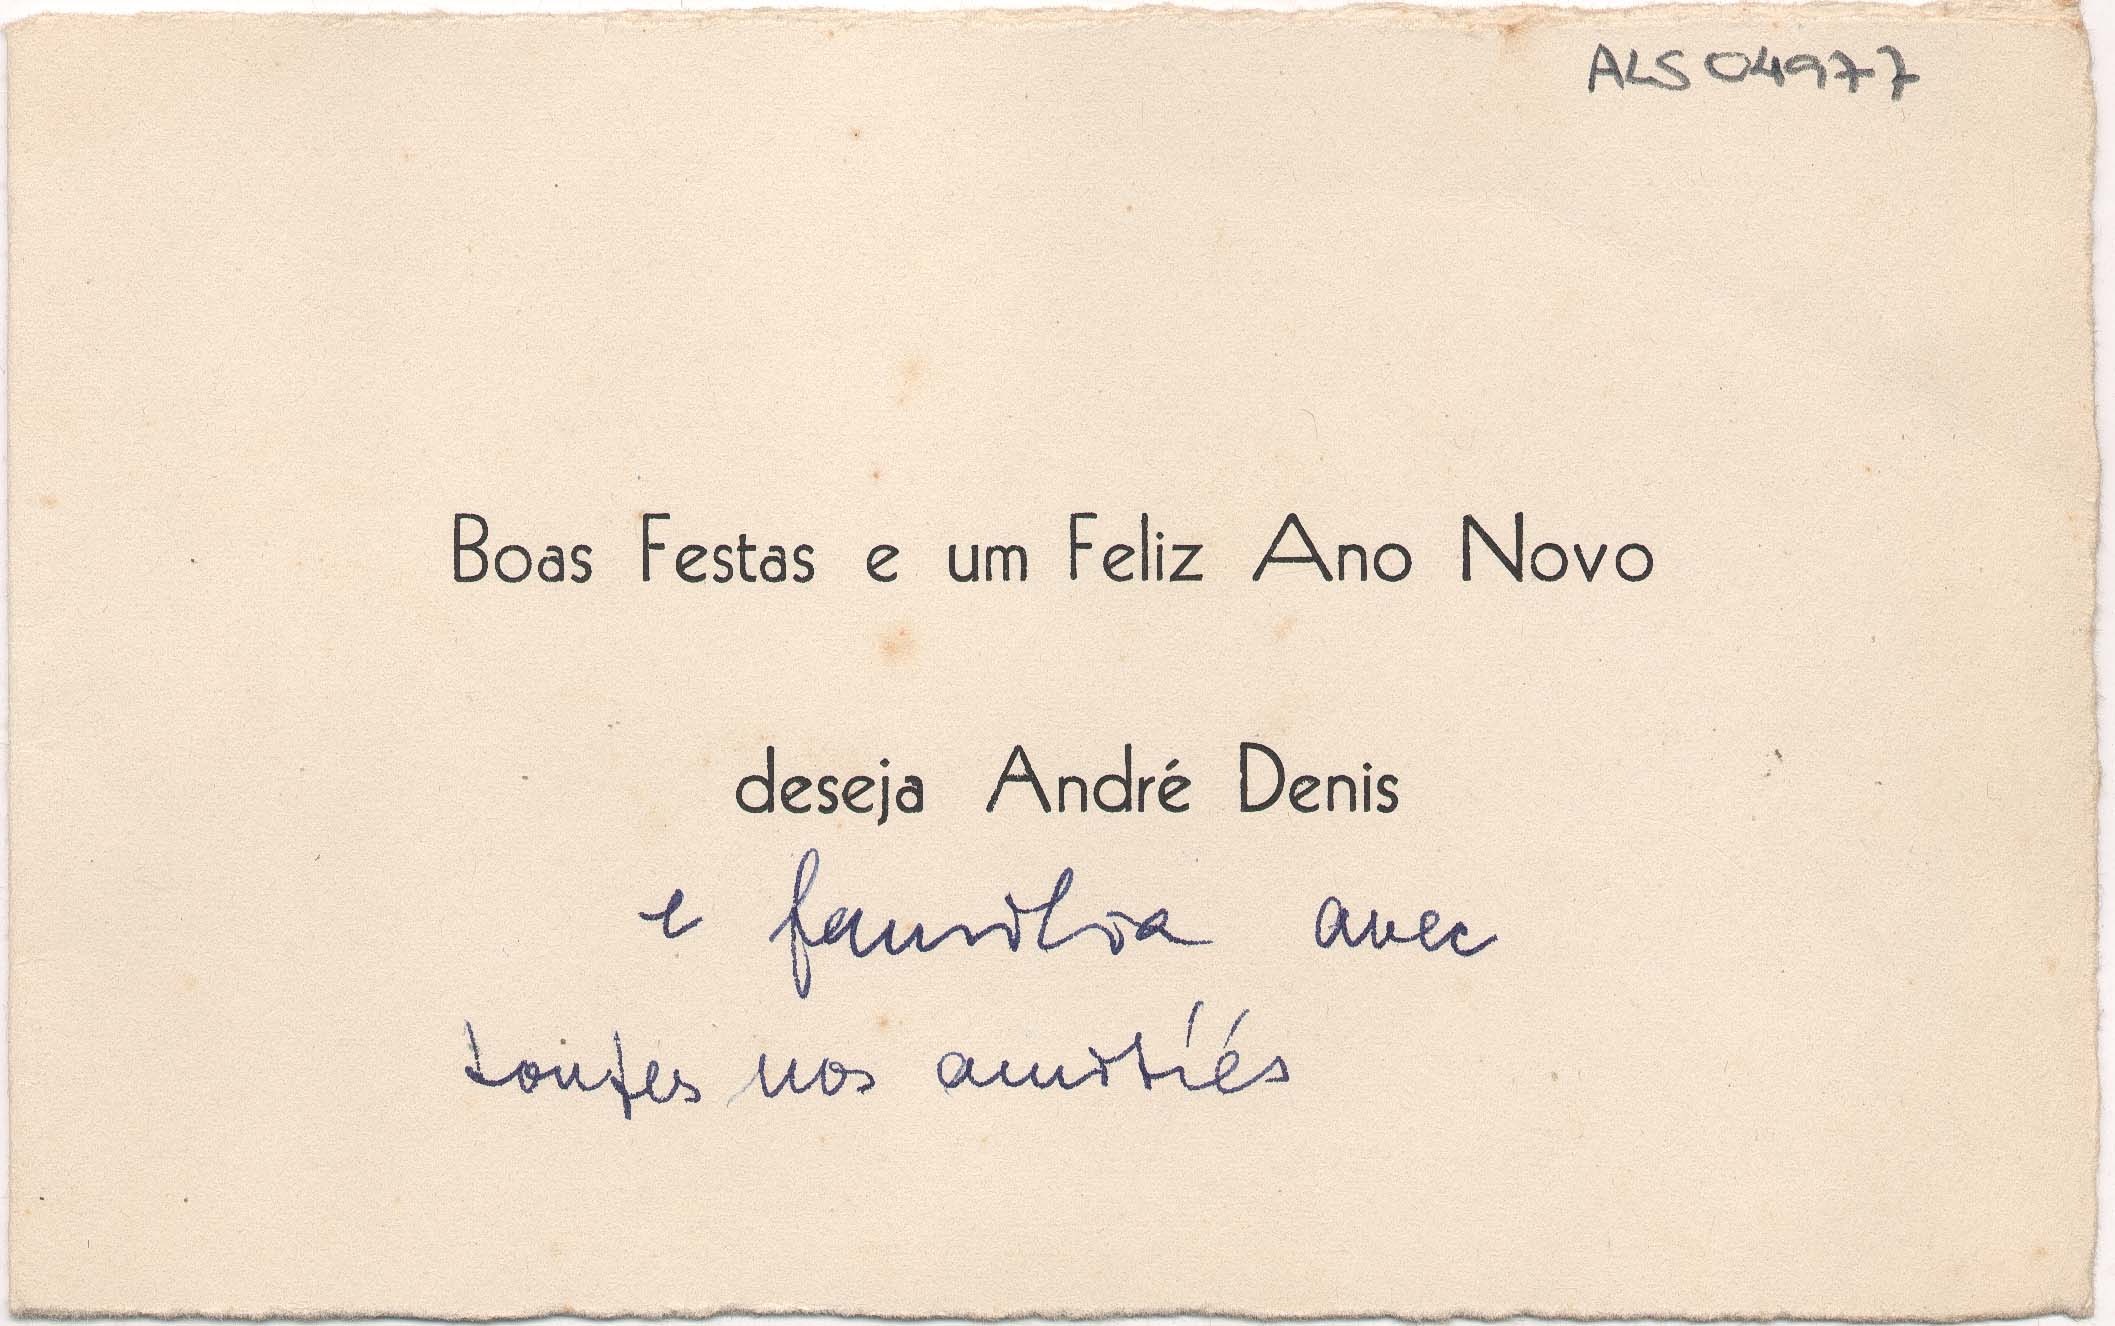 ALS 04977
Boas Festas e um Feliz Ano Novo
deseja André Denis
e familia avec
toutes nos amitiés